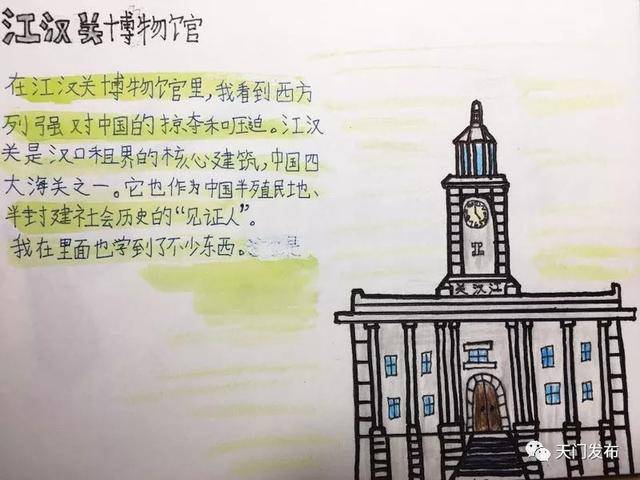 江汉关博物馆
在江汉关博物馆里，我看到西方
列强对中国的掠夺和压迫。江汉
关是汉口租界的核心建筑，中国四
大海关之一。它也作为中国半殖民地、
半封建社会历史的“见证人”。
我在里面也学到了不少东西。
关汉江
天门发布